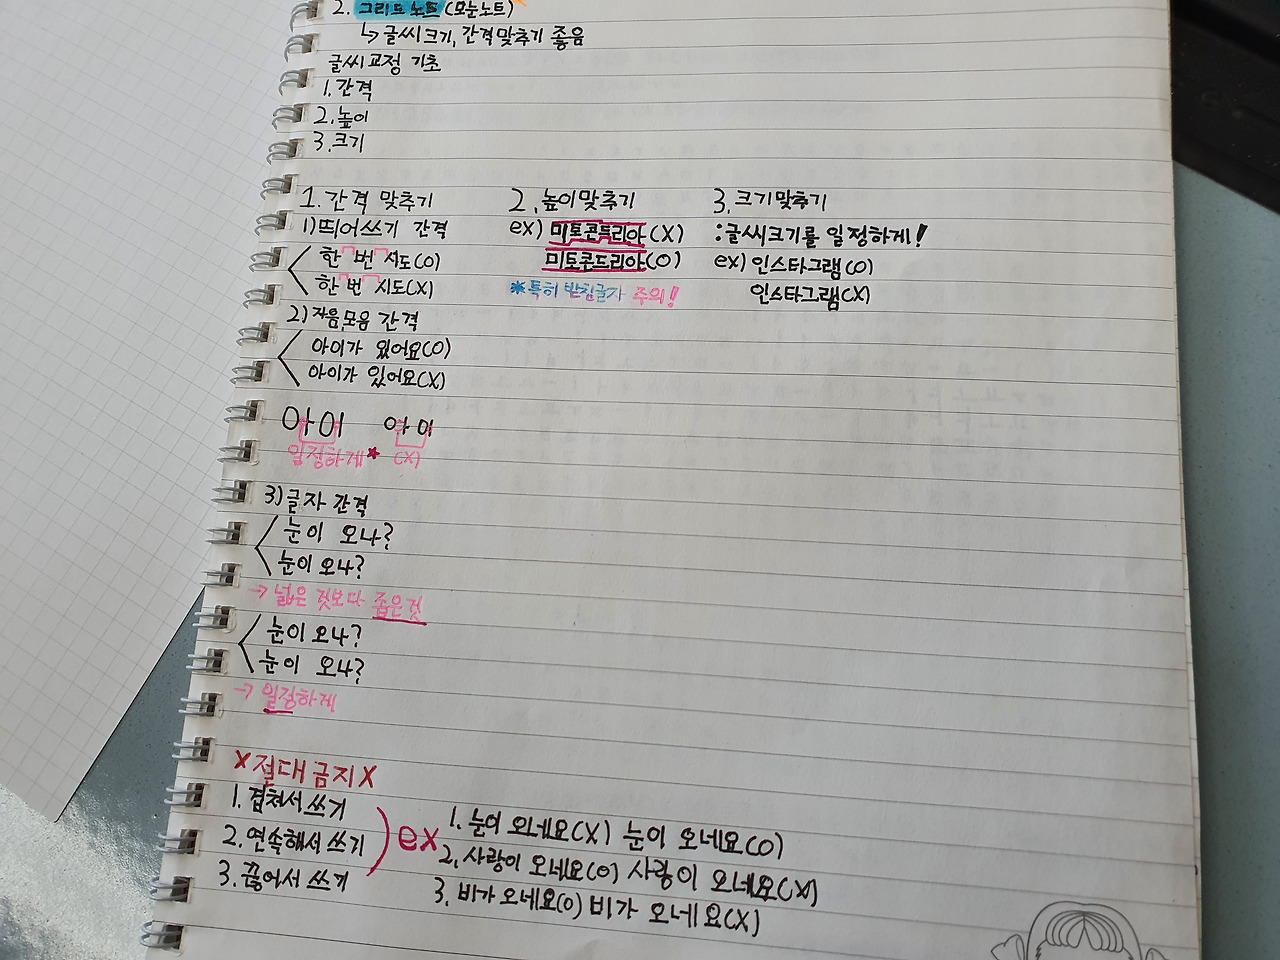 2. 그리드 노트 (모눈노트)
↳ 글씨크기, 간격맞추기 좋음
글씨교정 기초
1. 간격
2. 높이
3. 크기
1. 간격 맞추기
1) 띄어쓰기 간격
한 번 시도(O)
한 번 시도(X)
2) 자음,모음 간격
아이가 있어요(O)
아이가 있어요(X)
아이 아이
일정하게★ (X)
3) 글자 간격
눈이 오나?
눈이 오나?
→ 넓은 것보다 좁은것
눈이 오나?
눈이 오나?
→ 일정하게
2. 높이맞추기
ex) 미토콘드리아(X)
미토콘드리아(O)
*특히 받침글자 주의!
3. 크기맞추기
: 글씨크기를 일정하게!
ex) 인스타그램(O)
인스타그램(X)
X절대금지X
1. 겹쳐서 쓰기
2. 연속해서 쓰기
3. 끊어서 쓰기
ex
1. 눈이 오네요(X) 눈이 오네요(O)
2. 사랑이 오네요(O) 사랑이 오네요(X)
3. 비가오네요(O) 비가 오네요(X)